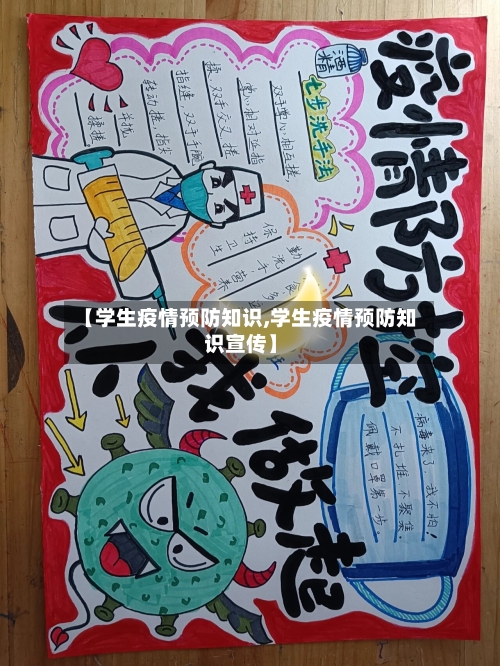 疫情防控
从我做起
酒精
七步洗手法
双手掌心相互搓,
掌心相对,
揉 双手交叉 搓
指缝 双手手腕
转动 揉 指尖
揉搓
勤洗手
保持卫生
【学生疫情预防知识,学生疫情预防知
识宣传】
病毒来了 我不怕!
不扎堆 不聚集.
佩戴口罩第一步